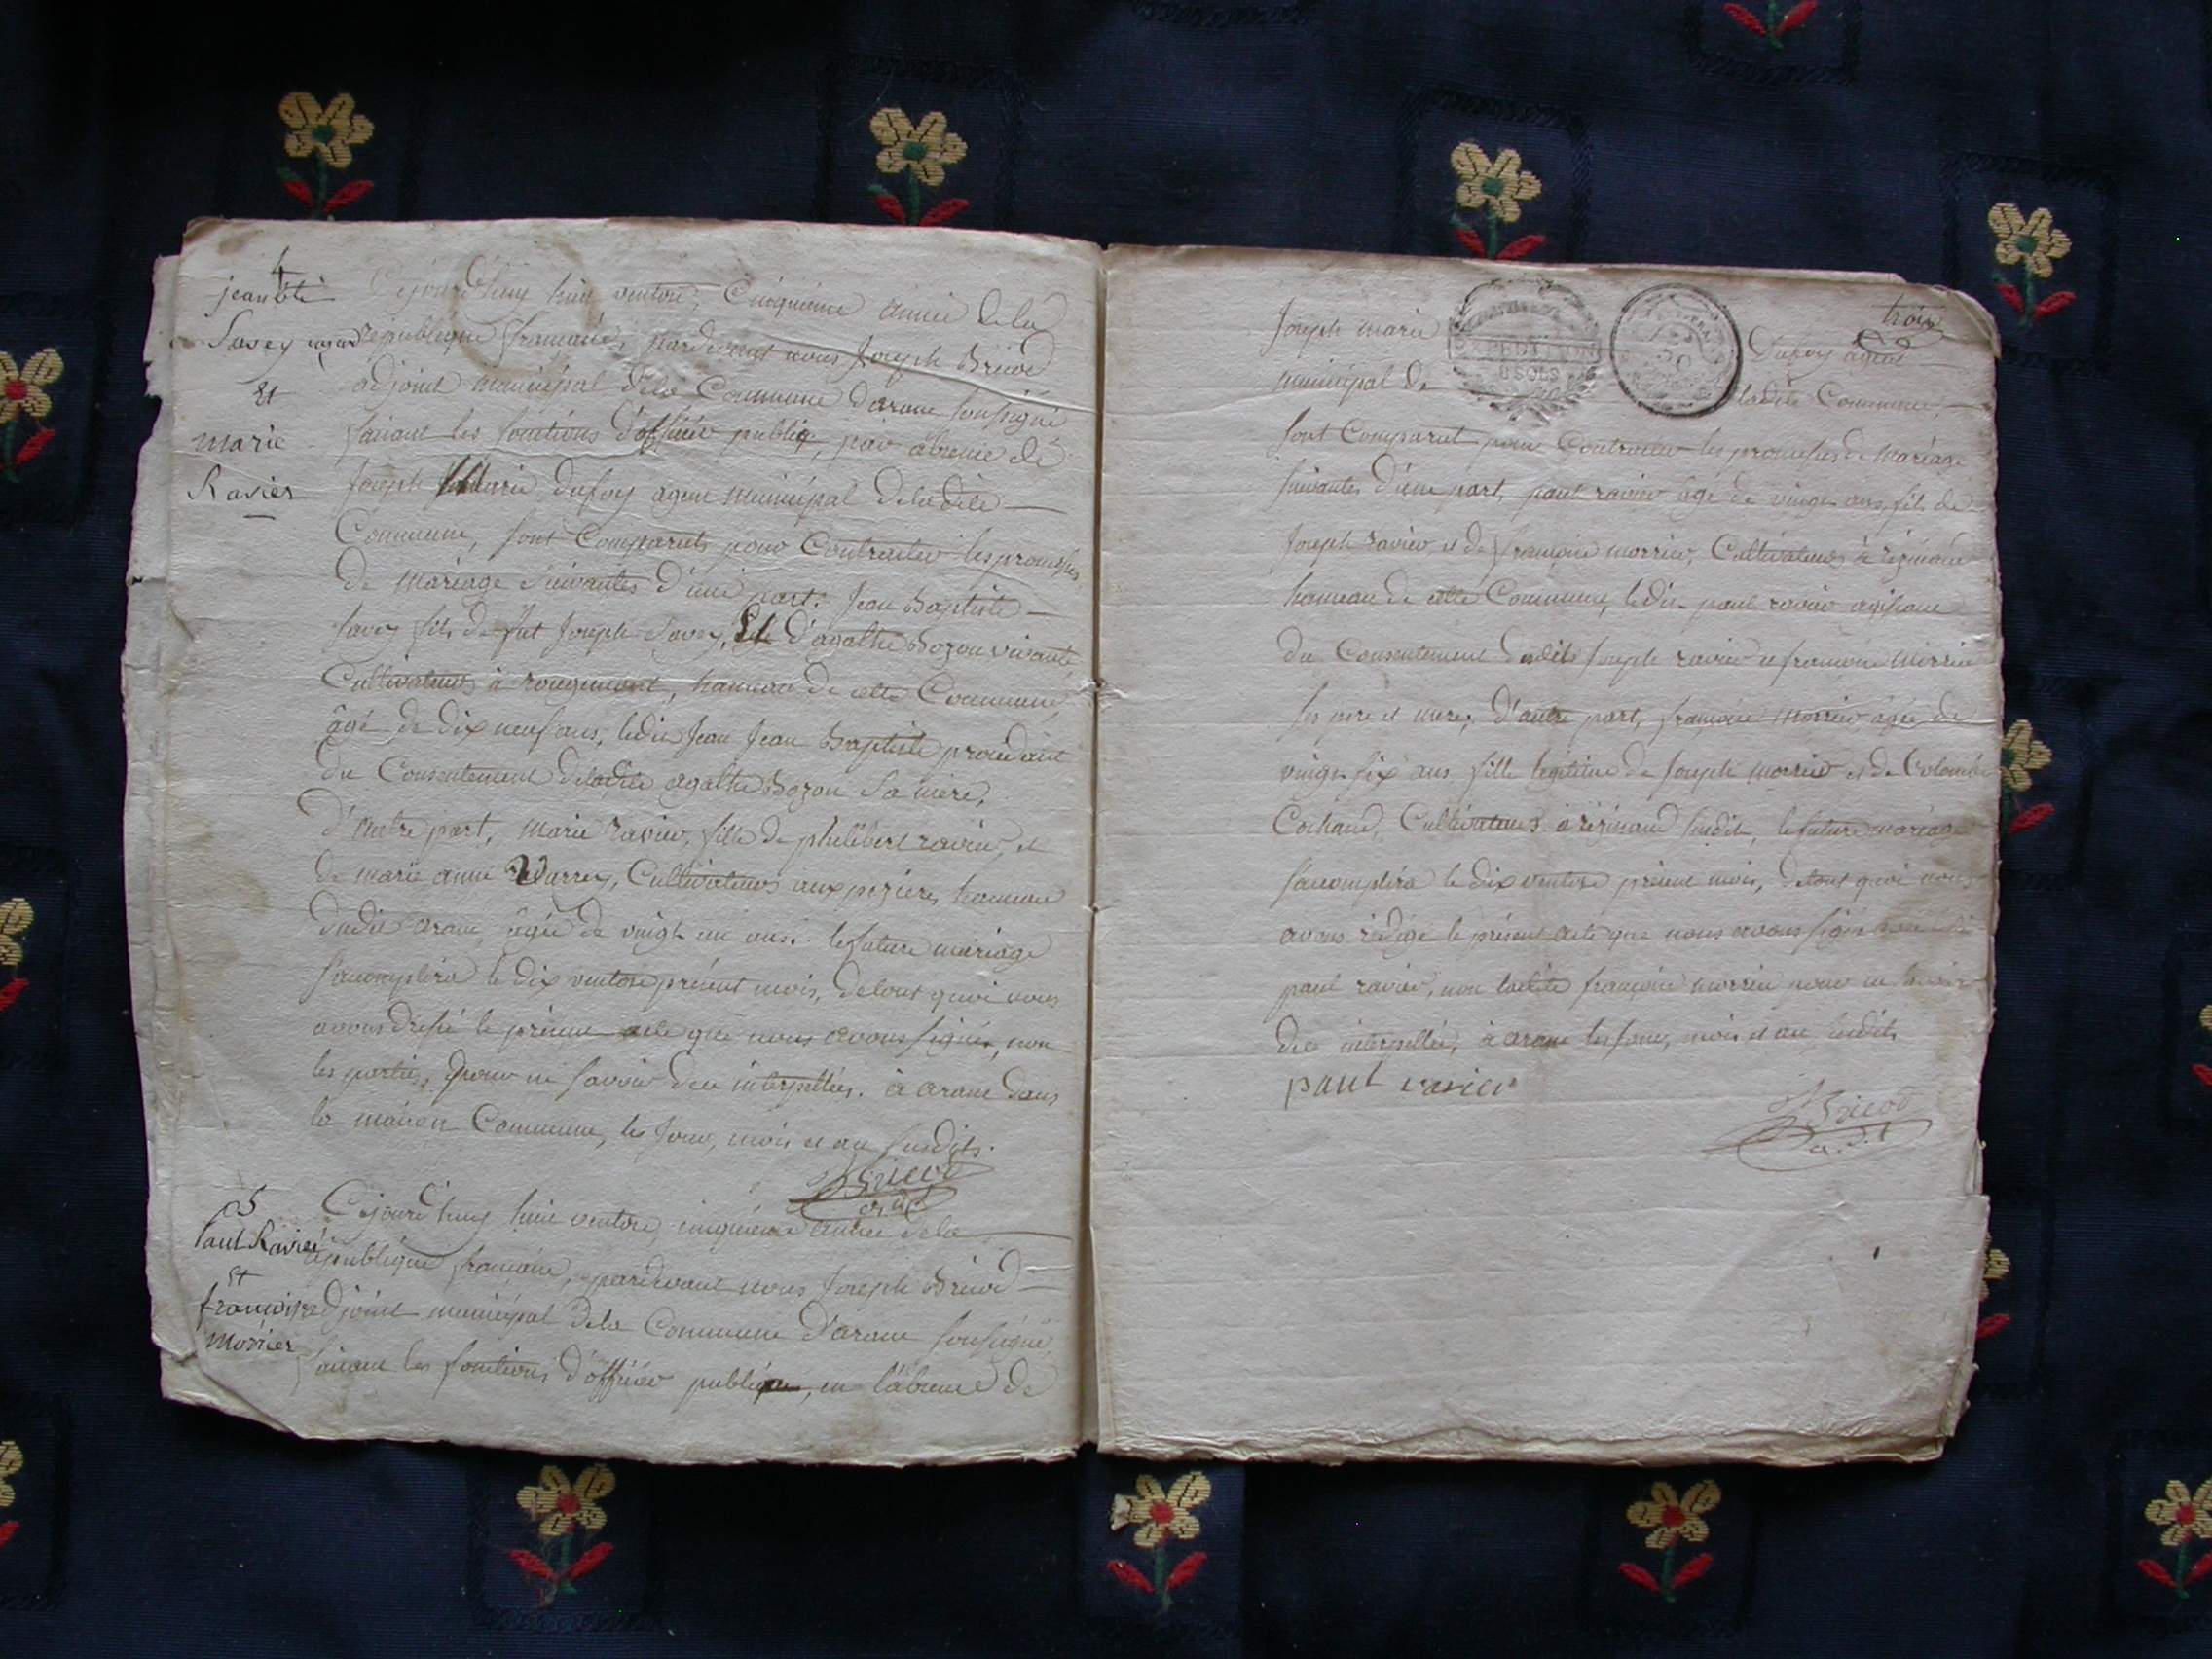 4
jean bte
Savey
Et
marie
Ravier
Cejourd'huy huit ventose, Cinquieme année dela
republique francaise, pardevant nous Joseph Bricod
adjoint municipal dela Commune d'arane soussigné
faisant les fonctions d'officier public, par absence de
Joseph Marie dufoy agent municipal deladite
Commune, sont Comparuts pour Contracter les promesses
de mariage suivantes d'une part. Jean Baptiste
savey fils de fut Joseph Savey, Et d'agathe Bozon vivante
Cultivateurs à rougemont, hameau de cette Commune,
âgé de dix neuf ans, ledit Jean Jean Baptiste procedant
du Consentement deladite agathe Bozon sa mère,
D'autre part, marie ravier, fille de philibert ravier, et
de marie anne, Cultivateurs aux pezieres hameau
dudit arane, âgée de vingt un ans. le future mariage
s'accomplira le dix ventose présent mois, detout quoi nous
avons dressé le présent acte que nous avons signé, non
les parties, pour ne savoir de ce interpellées. à arane dans
la maison Commune, les jour, mois et an susdits.
Bricod
adjt
5
Paul Ravier
Et
françoise
Morrier
Cejourd'huy huit ventose, cinquieme année dela
république francaise, pardevant nous Joseph Bricod
adjoint municipal dela Commune d'arane soussigné,
faisant les fonctions d'officier public, en l'absence de
trois
Joseph marie Dufoy agent
municipal de ladite Commune,
EXPEDITION
8 SOLS
sont Comparut pour Contracter les promesses de mariage
suivantes d'une part, paul ravier âgé de vingt ans, fils de
Joseph ravier, et de françoise morrier, Cultivateurs à résinand
hameau de cette Commune, ledit paul ravier agissant
du Consentement desdits Joseph ravier et françoise morrier
ses père et mère, d'autre part, françoise morrier âgée de
vingt six ans fille légitime de Joseph morrier et de Colombe
Cochand, Cultivateurs à résinand susdit, le future mariage
s'accomplira le dix ventose présent mois, detout quoi nous
avons rédigé le présent acte que nous avons signé avec ledit
paul ravier, non ladite françoise morrier pour ne savoir
de ce interpellée, à arane les jour, mois et an susdits
paul ravier
Bricod
adjt